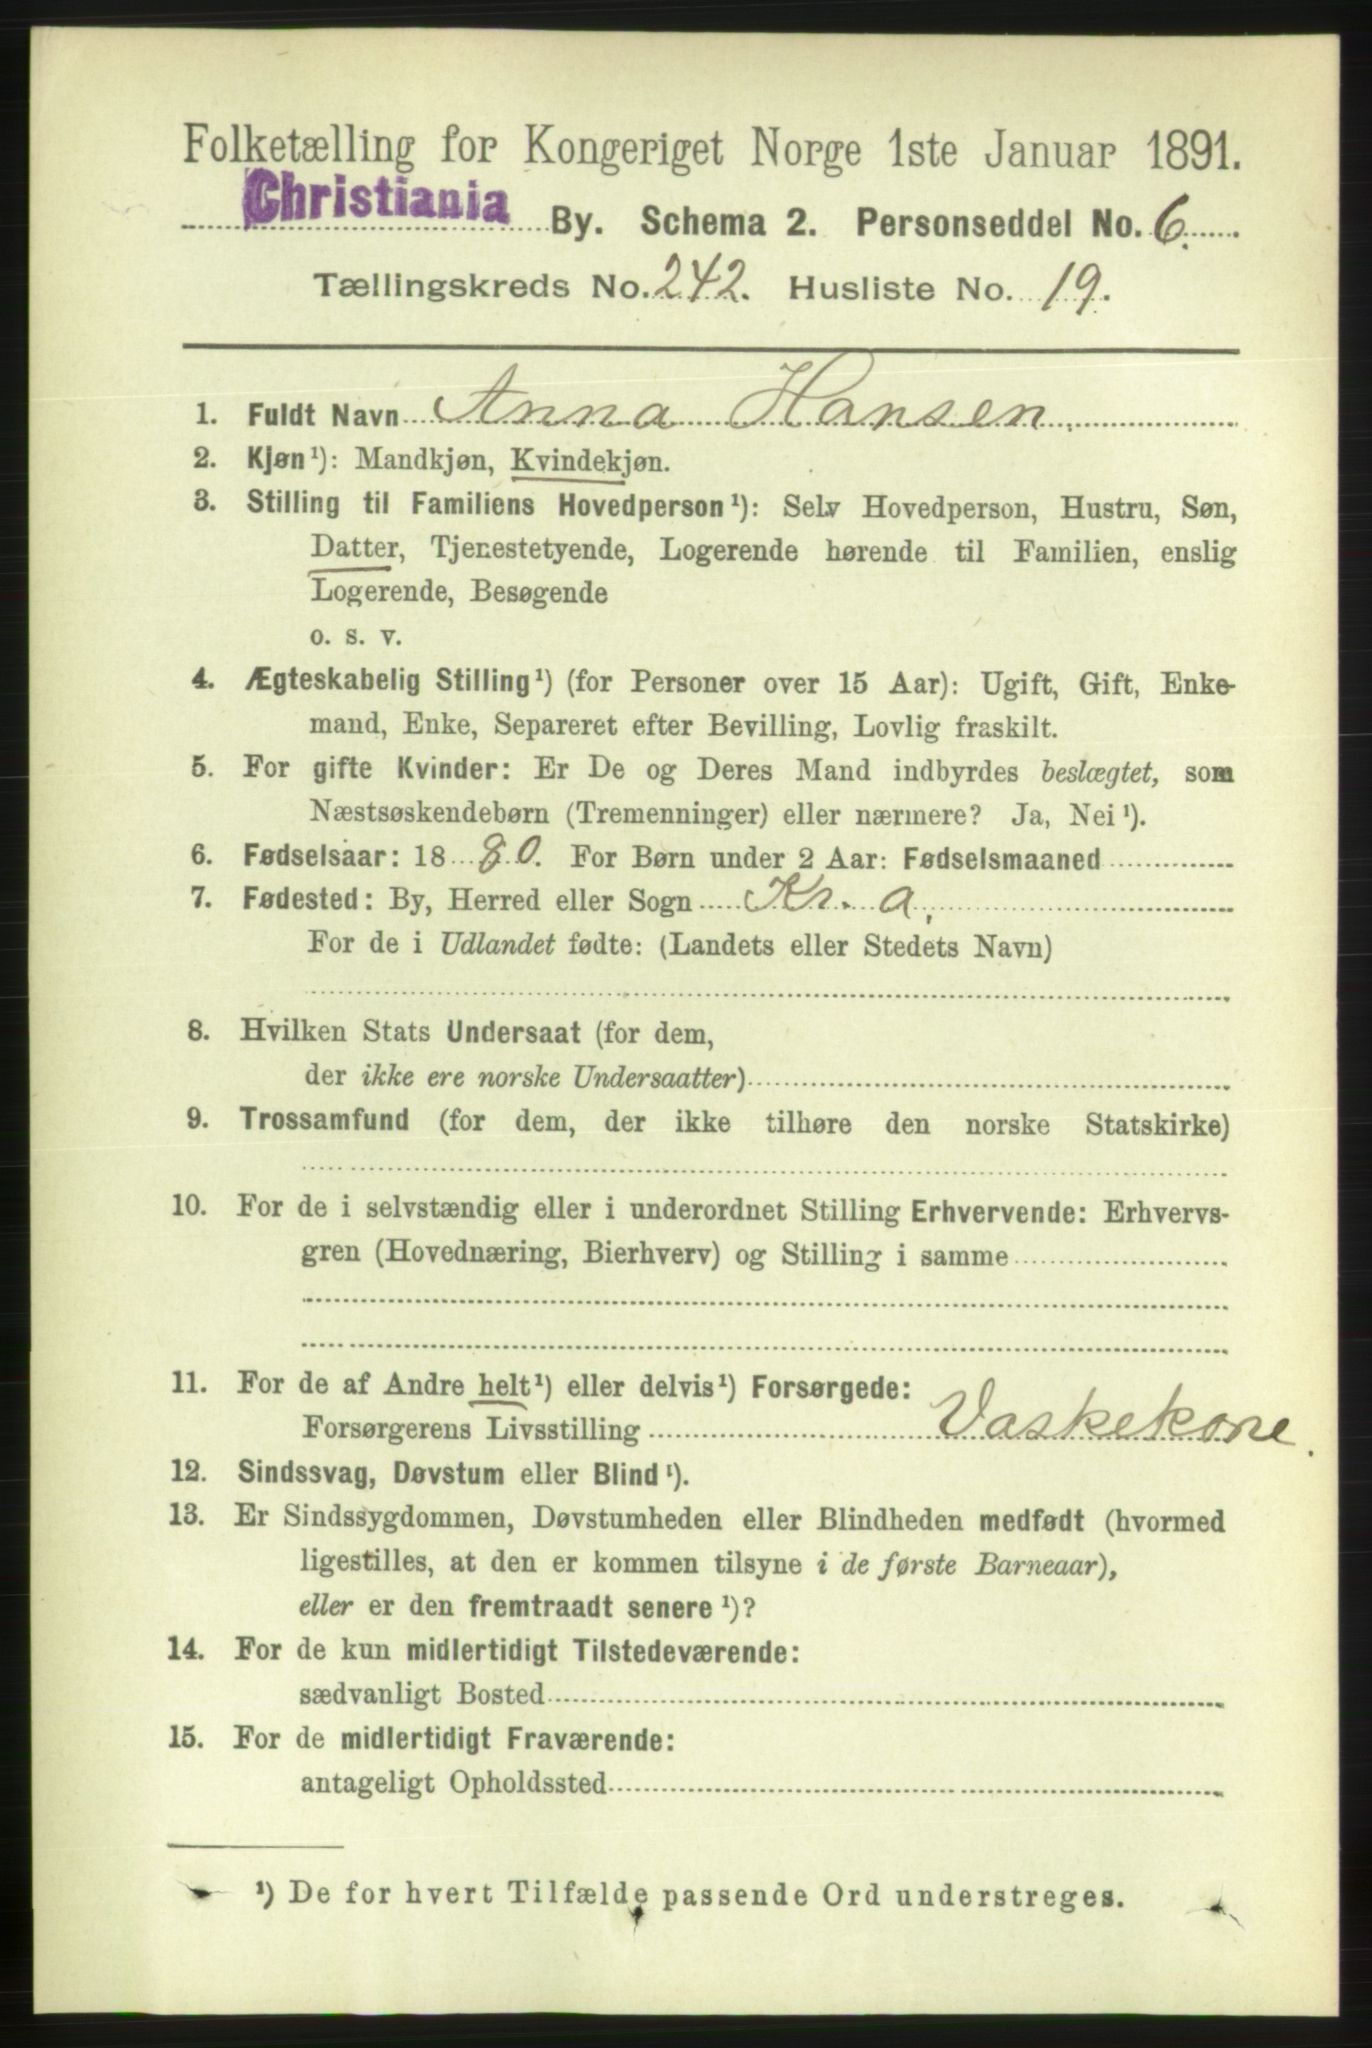 Folketælling for Kongeriget Norge 1ste Januar 1891.
Christiania By. Schema 2. Personseddel No. 6.
Tællingskreds No. 242. Husliste No. 19.
1. Fuldt Navn Anna Hansen.
2. Kjøn¹): Mandkjøn, Kvindekjøn.
3. Stilling til Familiens Hovedperson¹): Selv Hovedperson, Hustru, Søn,
Datter, Tjenestetyende, Logerende hørende til Familien, enslig
Logerende, Besøgende
o. s. v.
4. Ægteskabelig Stilling¹) (for Personer over 15 Aar): Ugift, Gift, Enke-
mand, Enke, Separeret efter Bevilling, Lovlig fraskilt.
5. For gifte Kvinder: Er De og Deres Mand indbyrdes beslægtet, som
Næstsøskendebørn (Tremenninger) eller nærmere? Ja, Nei¹).
6. Fødselsaar: 1880. For Børn under 2 Aar: Fødselsmaaned
7. Fødested: By, Herred eller Sogn Kr. a.
For de i Udlandet fødte: (Landets eller Stedets Navn)
8. Hvilken Stats Undersaat (for dem,
der ikke ere norske Undersaatter)
9. Trossamfund (for dem, der ikke tilhøre den norske Statskirke)
10. For de i selvstændig eller i underordnet Stilling Erhvervende: Erhvervs-
gren (Hovednæring, Bierhverv) og Stilling i samme
11. For de af Andre helt¹) eller delvis¹) Forsørgede:
Forsørgerens Livsstilling Vaskekone.
12. Sindssvag, Døvstum eller Blind¹).
13. Er Sindssygdommen, Døvstumheden eller Blindheden medfødt (hvormed
ligestilles, at den er kommen tilsyne i de første Barneaar),
eller er den fremtraadt senere¹)?
14. For de kun midlertidigt Tilstedeværende:
sædvanligt Bosted
15. For de midlertidigt Fraværende:
antageligt Opholdssted
¹) De for hvert Tilfælde passende Ord understreges.